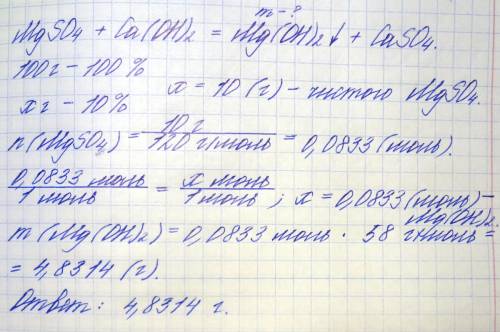 m - ?
MgSO₄ + Ca(OH)₂ = Mg(OH)₂↓ + CaSO₄.
100 г - 100 %
x г - 10 %
x = 10 (г) - чистого MgSO₄.
n(MgSO₄) = 10 г / 120 г/моль = 0,0833 (моль).
0,0833 моль / 1 моль = x моль / 1 моль ; x = 0,0833 (моль) -
Mg(OH)₂.
m (Mg(OH)₂) = 0,0833 моль · 58 г/моль =
= 4,8314 (г).
Ответ: 4,8314 г.